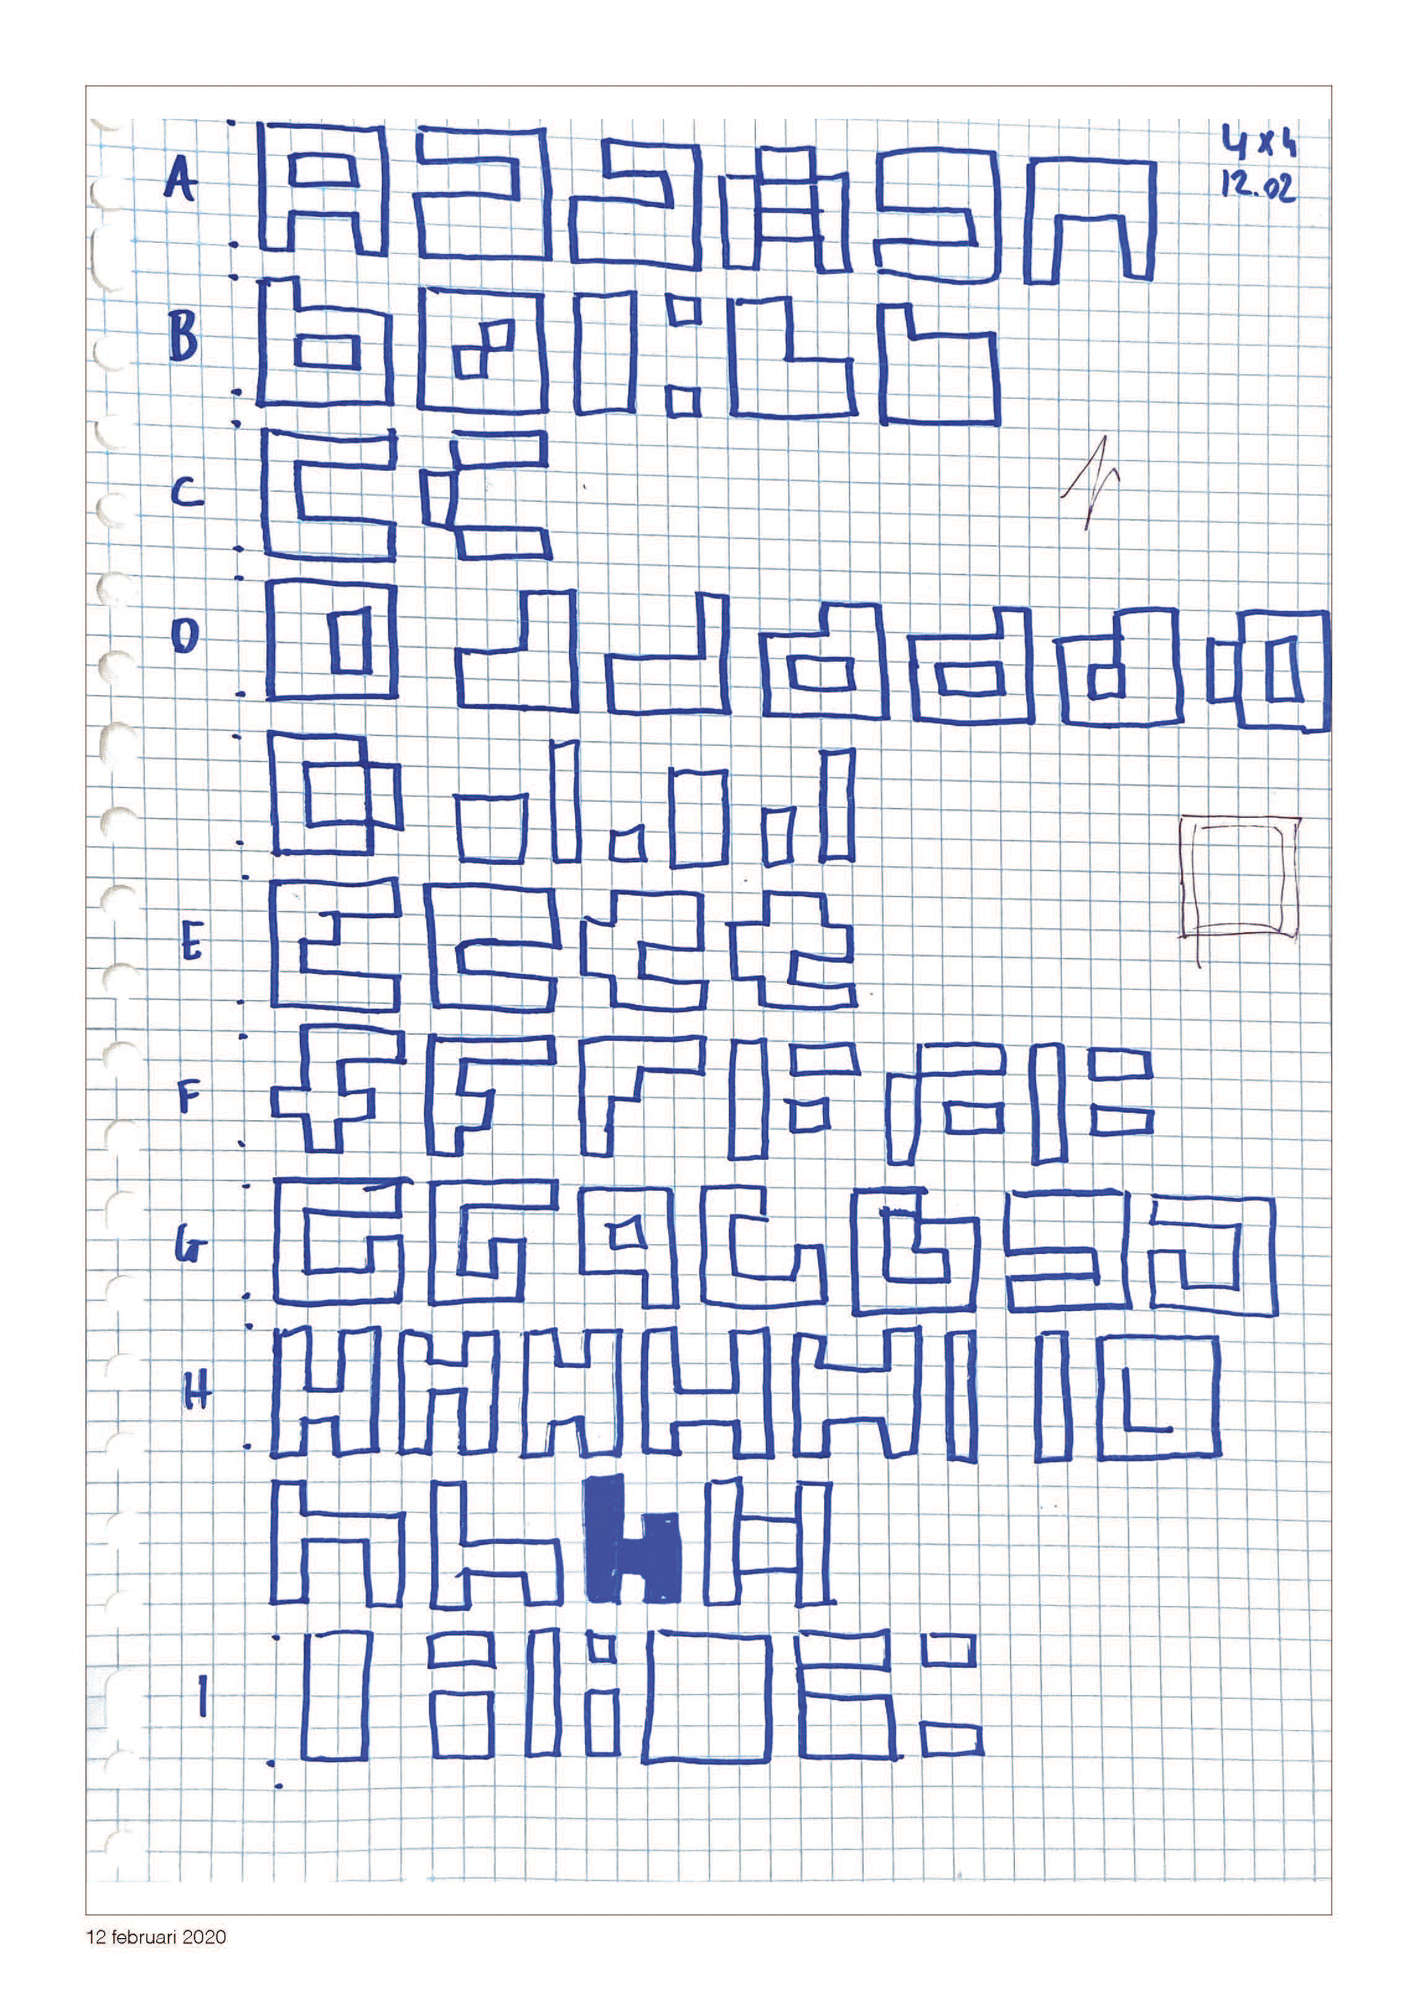 4x4
12.02
A
B
C
D
E
F
G
H
I
12 februari 2020